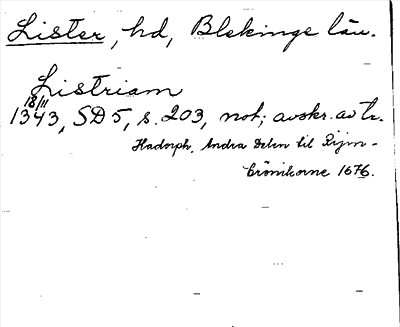 Lister, hd, Blekinge län.
Listriam
18/11
1343, SD 5, s. 203, not; avskr. av tr.
Hadorph, Andra Delen til Rijm-
Crönikorne 1676.